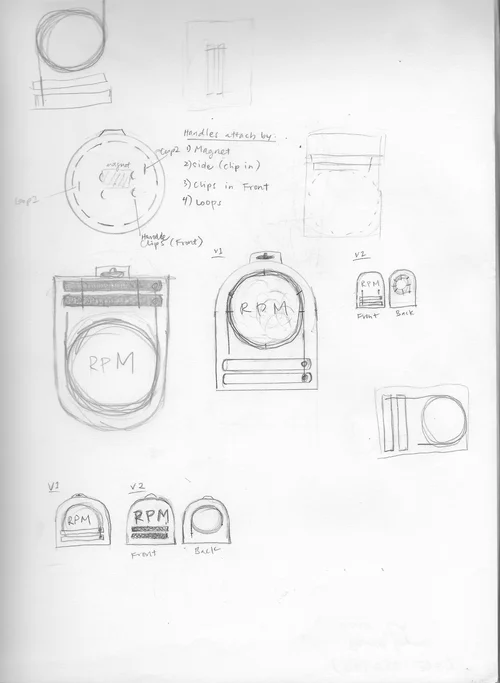 Handles attach by:
1) Magnet
2) side (clip in)
3) Clips in Front
4) Loops
Loop2
magnet
Loop2
Handle
Clips (Front)
V1
V2
RPM
RPM
RPM
Front
Back
V1
V2
RPM
RPM
Front
Back